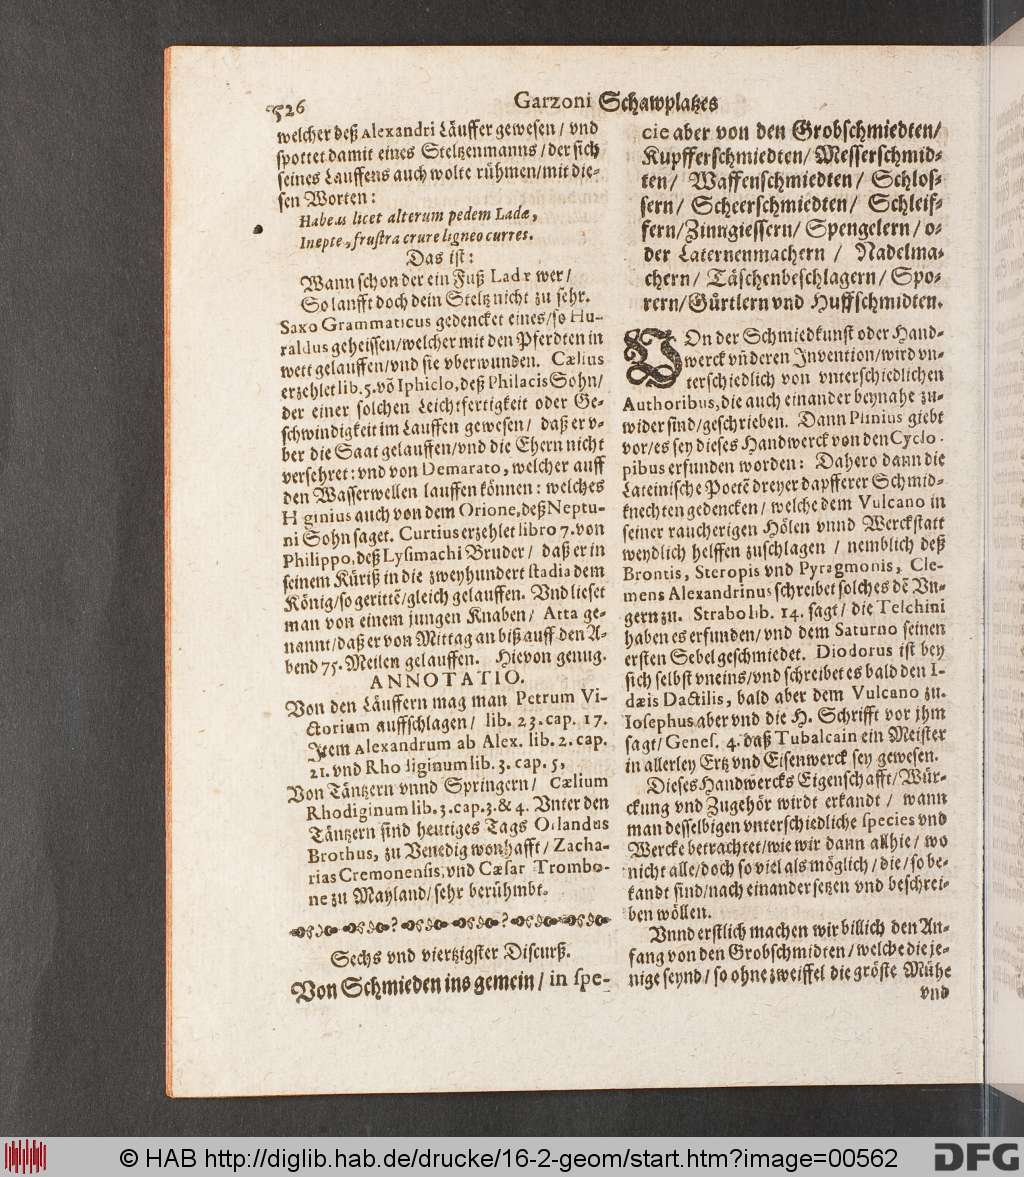 526
Garzoni Schawplatzes
welcher deß Alexandri Läuffer gewesen / vnd
spottet damit eines Steltzenmanns / der sich
seines Lauffens auch wolte rühmen / mit die-
sen Worten:
Habeas licet alterum pedem Ladæ,
Inepte, frustra crure ligneo curres.
Das ist:
Wann schon der ein Fuß Ladæ wer /
So laufft doch dein Steltz nicht zu sehr.
Saxo Grammaticus gedencket eines / so Hu-
raldus geheissen / welcher mit den Pferdten in
wett gelauffen / vnd sie vberwunden. Cælius
erzehlet lib. 5. võ Iphiclo, deß Philacis Sohn /
der einer solchen Leichtfertigkeit oder Ge-
schwindigkeit im Lauffen gewesen / daß er v-
ber die Saat gelauffen / vnd die Ehern nicht
versehret: vnd von Demarato, welcher auff
den Wasserwellen lauffen können: welches
Higinius auch von dem Orione, deß Neptu-
ni Sohn saget. Curtius erzehlet libro 7. von
Philippo, deß Lysimachi Bruder / daß er in
seinem Küriß in die zweyhundert stadia dem
König / so gerittẽ / gleich gelauffen. Vnd lieset
man von einem jungen Knaben / Atta ge-
nannt / daß er von Mittag an biß auff den A-
bend 75. Meilen gelauffen. Hievon genug.
ANNOTATIO.
Von den Läuffern mag man Petrum Vi-
ctorium auffschlagen / lib. 23. cap. 17.
Item Alexandrum ab Alex. lib. 2. cap.
21. vnd Rhodiginum lib. 3. cap. 5,
Von Täntzern vnnd Springern / Cælium
Rhodiginum lib. 3. cap. 3. & 4. Vnter den
Täntzern sind heutiges Tags Orlandus
Brothus, zu Venedig wonhafft / Zacha-
rias Cremonensis, vnd Cæsar Trombo-
ne zu Mayland / sehr berühmbt.
Sechs vnd viertzigster Discurß.
Von Schmieden ins gemein / in spe-
cie aber von den Grobschmiedten /
Kupfferschmiedten / Messerschmid-
ten / Waffenschmiedten / Schlos-
sern / Scheerschmiedten / Schleif-
fern / Zinngiessern / Spengelern / o-
der Laternenmachern / Nadelma-
chern / Täschenbeschlagern / Spo-
rern / Gürtlern vnd Huffschmidten.
VOn der Schmiedkunst oder Hand-
werck vñ deren Invention / wird vn-
terschiedlich von vnterschiedlichen
Authoribus, die auch einander beynahe zu-
wider sind / geschrieben. Dann Plinius giebt
vor / es sey dieses Handwerck von den Cyclo-
pibus erfunden worden: Dahero dann die
Lateinische Poetẽ dreyer dapfferer Schmid-
knechten gedencken / welche dem Vulcano in
seiner raucherigen Hölen vnnd Werckstatt
weydlich helffen zuschlagen / nemblich deß
Brontis, Steropis vnd Pyragmonis, Cle-
mens Alexandrinus schreibet solches dẽ Vn-
gern zu. Strabo lib. 14. sagt / die Telchini
haben es erfunden / vnd dem Saturno seinen
ersten Sebel geschmiedet. Diodorus ist bey
sich selbst vneins / vnd schreibet es bald den I-
dæis Dactilis, bald aber dem Vulcano zu.
Iosephus aber vnd die H. Schrifft vor jhm
sagt / Genes. 4. daß Tubalcain ein Meister
in allerley Ertz vnd Eisenwerck sey gewesen.
Dieses Handwercks Eigenschafft / Wür-
ckung vnd Zugehör wirdt erkandt / wann
man desselbigen vnterschiedliche species vnd
Wercke betrachtet / wie wir dann allhie / wo
nicht alle / doch so viel als möglich / die / so be-
kandt sind / nach einander setzen vnd beschrei-
ben wöllen.
Vnnd erstlich machen wir billich den An-
fang von den Grobschmidten / welche die je-
nige seynd / so ohne zweiffel die gröste Mühe
vnd
© HAB http://diglib.hab.de/drucke/16-2-geom/start.htm?image=00562
DFG